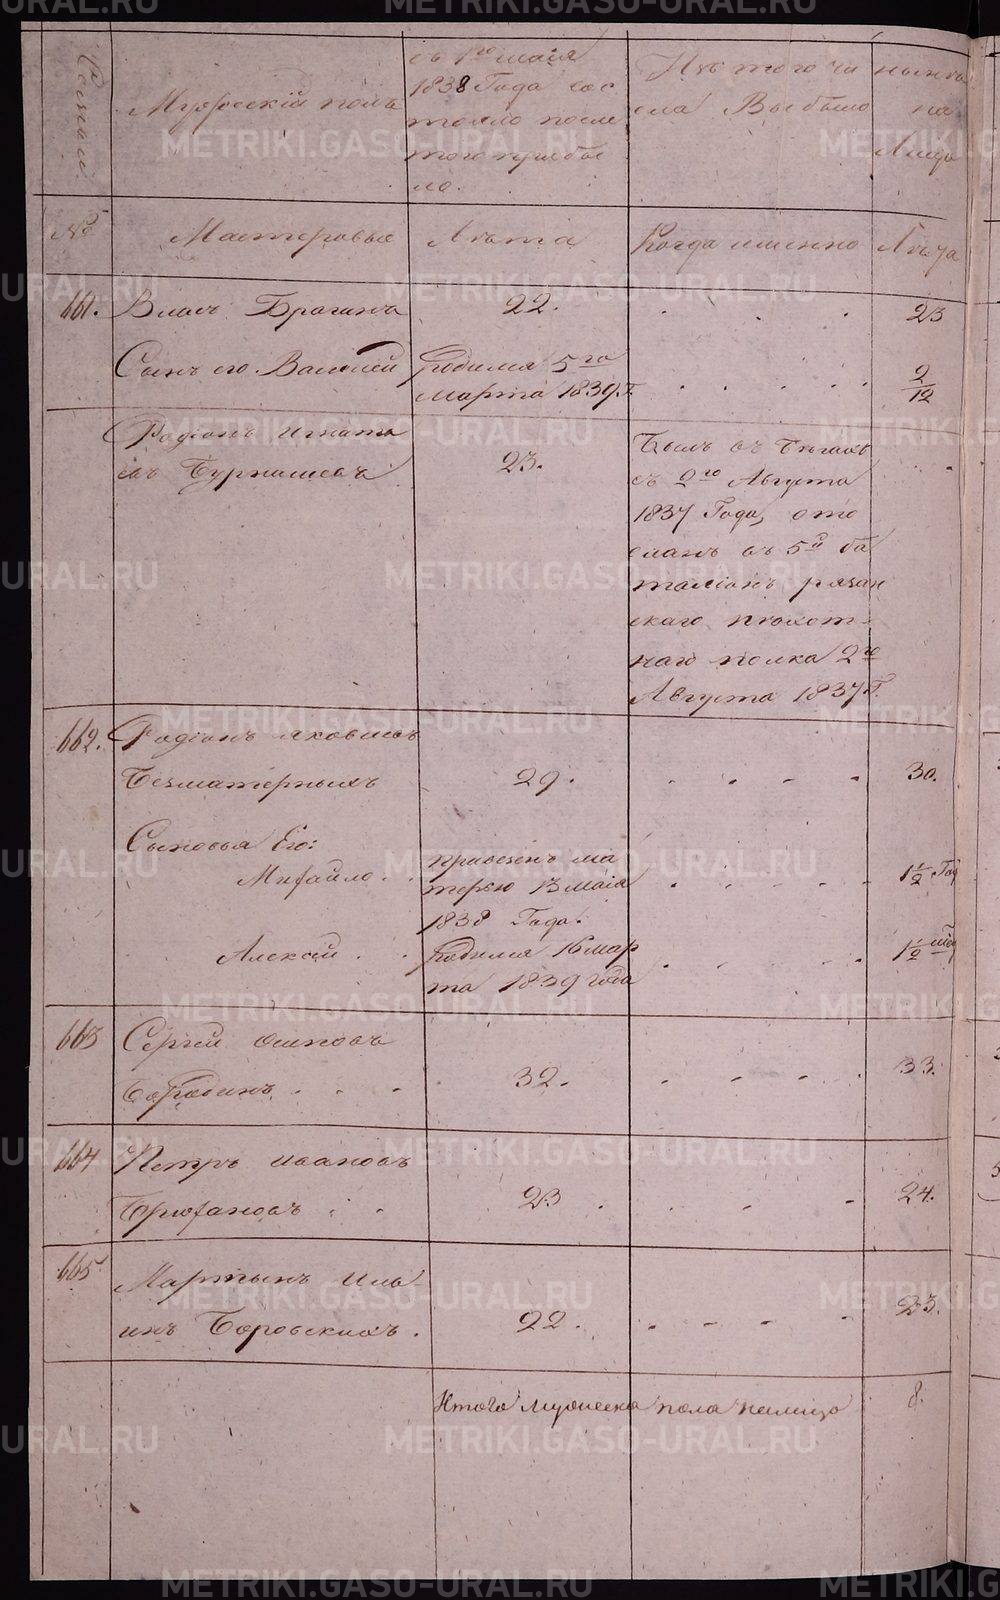 Семьи
Мужескій полъ
съ 1го маія
1838 Года сос
тояло после
того прибы
ло.
Изъ того чи
сла Выбыло
нынѣ
на
Лицо
№
Мастеровые
Лѣта
Когда именно
Лѣта
661.
Власъ Брагинъ
22.
23
Сынъ его Василей
Родился 5го
марта 1839.Г.
2/12
Родіонъ Игнать
евъ Бурнашевъ
23.
Былъ въ бегахъ
съ 2го Августа
1837 Года, ото
сланъ въ 5й ба
таліонъ рязан
скаго пехот-
наго полка 2го
Августа 1837.Г.
662.
Родіонъ Яковлевъ
Безматерныхъ
29.
30.
Сыновья Его:
Михайло
привезенъ ма
терью 13 маія
1838 Года.
1 1/2 Год
Алексей
Родился 16 мар
та 1839 года
1 1/2
663
Сергей Осиповъ
Бородинъ
32.
33.
664
Петръ Ивановъ
23
24.
665
Мартынъ Иль
инъ Боровскихъ.
22.
23.
Итого мужеска пола налицо
8.
METRIKI.GASO-URAL.RU